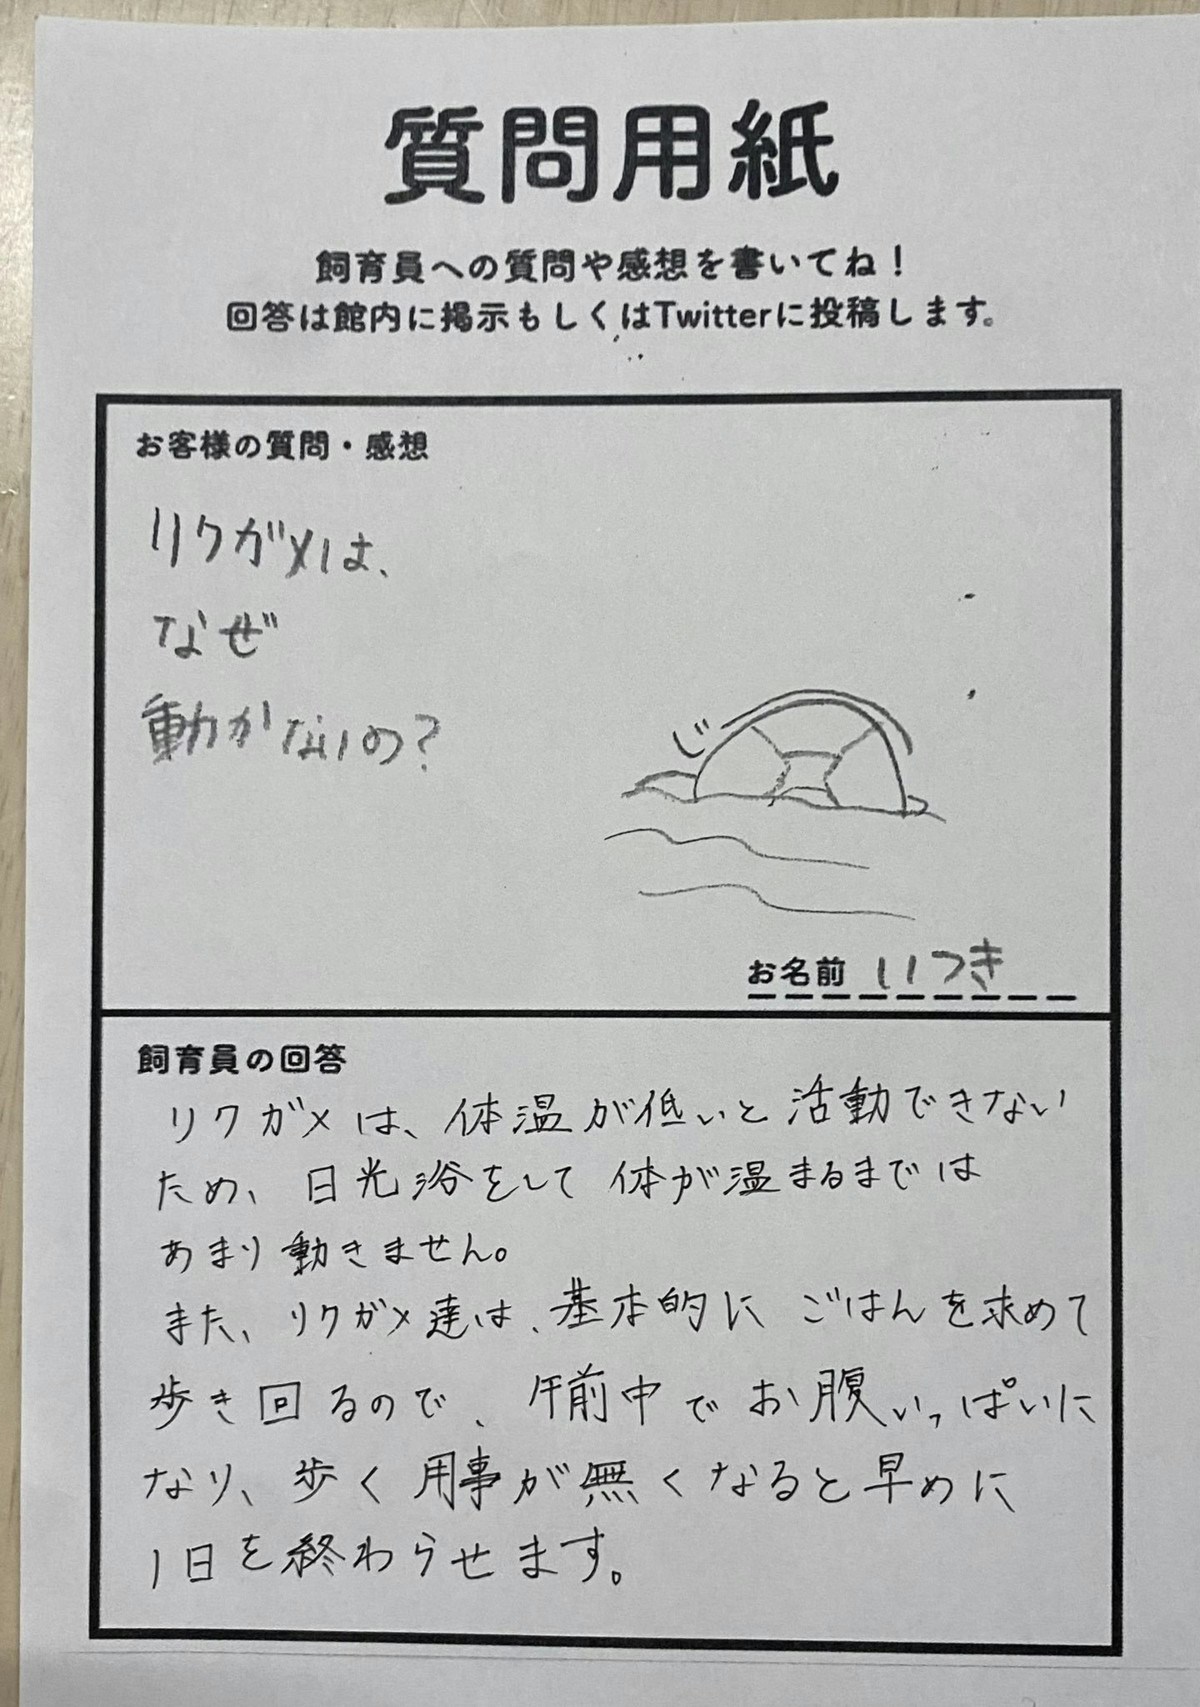 質問用紙
飼育員への質問や感想を書いてね！
回答は館内に掲示もしくはTwitterに投稿します。
お客様の質問・感想
リクガメは、
なぜ
動かないの?
じ
お名前 いつき
飼育員の回答
リクガメは、体温が低いと活動できない
ため、日光浴をして体が温まるまでは
あまり動きません。
また、リクガメ達は、基本的にごはんを求めて
歩き回るので、午前中でお腹いっぱいに
なり、歩く用事が無くなると早めに
1日を終わらせます。